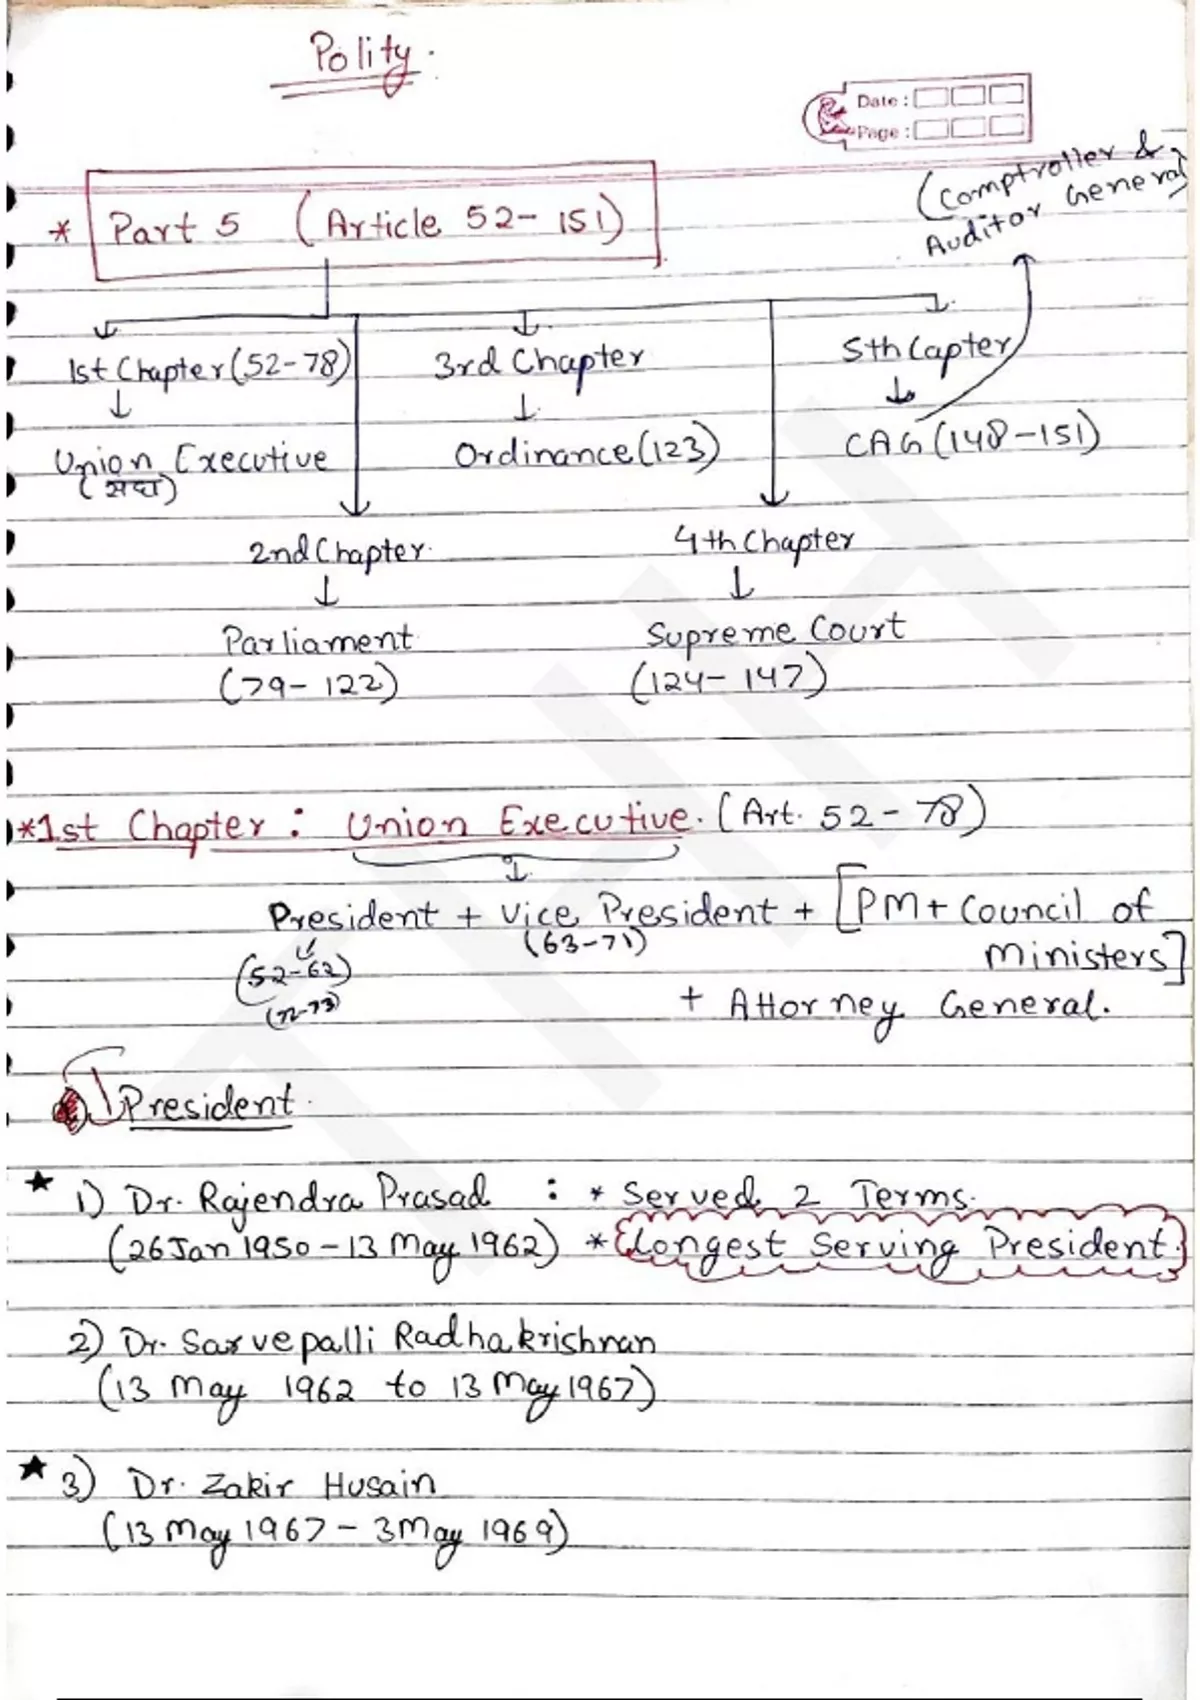 Polity.
Date :
Page :
(Comptroller &
Auditor General)
* Part 5 (Article 52- 151)
1st Chapter (52-78)
3rd Chapter
5th Capter
Union Executive
Ordinance (123)
CAG (148-151)
2nd Chapter.
4th Chapter
Parliament
Supreme Court
(79- 122)
(124- 147)
*1st Chapter : Union Executive. (Art. 52- 78)
President + Vice President + [PM+ Council of
(52-62)
(63-71)
Ministers]
(72-73)
+ Attorney General.
President.
★ 1) Dr. Rajendra Prasad : * Served 2 Terms.
(26 Jan 1950 - 13 May 1962) * Longest Serving President.
2) Dr. Sarvepalli Radhakrishnan
(13 May 1962 to 13 May 1967)
★ 3) Dr. Zakir Husain
(13 May 1967 - 3 May 1969)